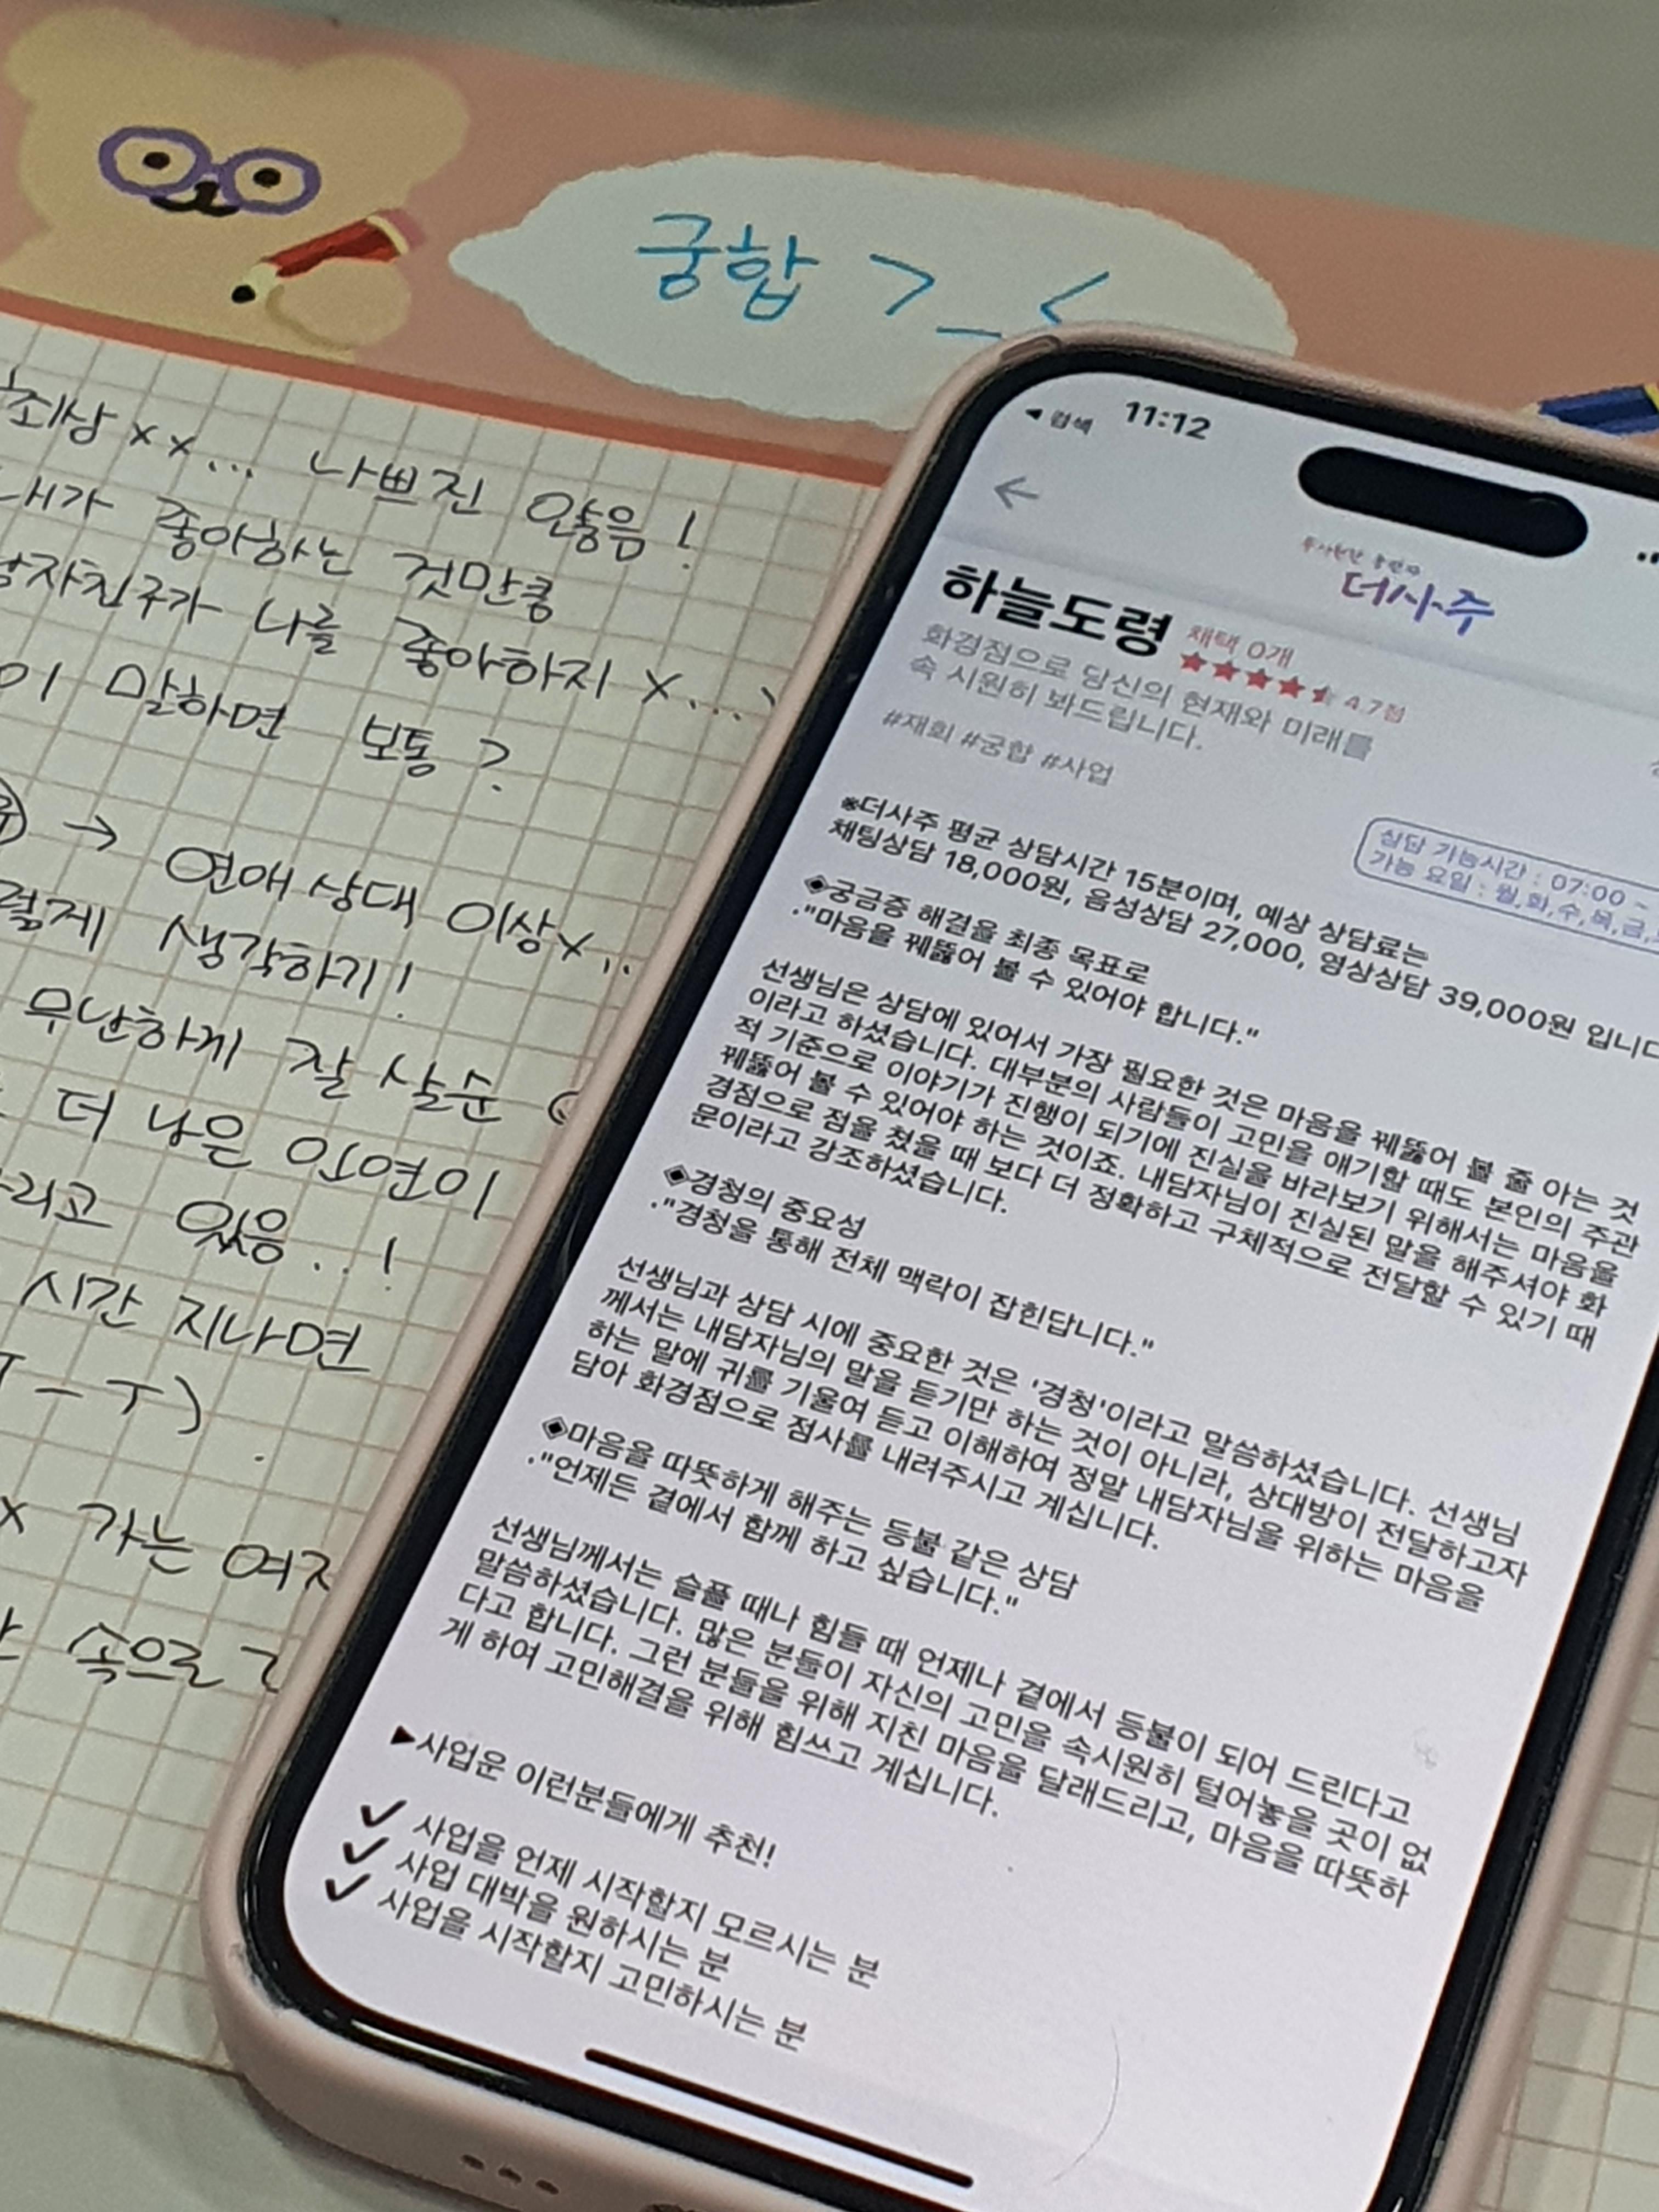 궁합 >_<
최상 xx... 나쁘진 않음!
내가 좋아하는 것만큼
남자친구가 나를 좋아하지 x...
이 말하면 보통?
→ 연애상대 이상x..
생각하기!
무난하게 잘 살순
더 나은 인연이
있음..!
시간 지나면
T-T)
x 가는
속으로
◂ 검색 11:12
←
더사주
하늘도령 채택 0개
★★★★ 4.7점
화경점으로 당신의 현재와 미래를
속 시원히 봐드립니다.
#재회 #궁합 #사업
상담 가능시간 : 07:00 ~
가능 요일 : 월,화,수,목,금,
※더사주 평균 상담시간 15분이며, 예상 상담료는
채팅상담 18,000원, 음성상담 27,000, 영상상담 39,000원 입니다
◈궁금증 해결을 최종 목표로
·"마음을 꿰뚫어 볼 수 있어야 합니다."
선생님은 상담에 있어서 가장 필요한 것은 마음을 꿰뚫어 볼 줄 아는 것
이라고 하셨습니다. 대부분의 사람들이 고민을 얘기할 때도 본인의 주관
적 기준으로 이야기가 진행이 되기에 진실을 바라보기 위해서는 마음을
꿰뚫어 볼 수 있어야 하는 것이죠. 내담자님이 진실된 말을 해주셔야 화
경점으로 점을 쳤을 때 보다 더 정확하고 구체적으로 전달할 수 있기 때
문이라고 강조하셨습니다.
◈경청의 중요성
·"경청을 통해 전체 맥락이 잡힌답니다."
선생님과 상담 시에 중요한 것은 '경청'이라고 말씀하셨습니다. 선생님
께서는 내담자님의 말을 듣기만 하는 것이 아니라, 상대방이 전달하고자
하는 말에 귀를 기울여 듣고 이해하여 정말 내담자님을 위하는 마음을
담아 화경점으로 점사를 내려주시고 계십니다.
◈마음을 따뜻하게 해주는 등불 같은 상담
·"언제든 곁에서 함께 하고 싶습니다."
선생님께서는 슬플 때나 힘들 때 언제나 곁에서 등불이 되어 드린다고
말씀하셨습니다. 많은 분들이 자신의 고민을 속시원히 털어놓을 곳이 없
다고 합니다. 그런 분들을 위해 지친 마음을 달래드리고, 마음을 따뜻하
게 하여 고민해결을 위해 힘쓰고 계십니다.
▶사업운 이런분들에게 추천!
✓ 사업을 언제 시작할지 모르시는 분
✓ 사업 대박을 원하시는 분
✓ 사업을 시작할지 고민하시는 분